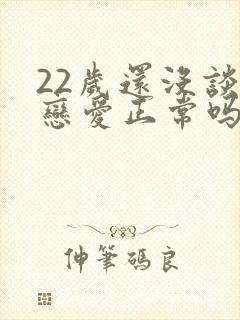 22歲還沒談
戀愛正常嗎
仲筆碼良